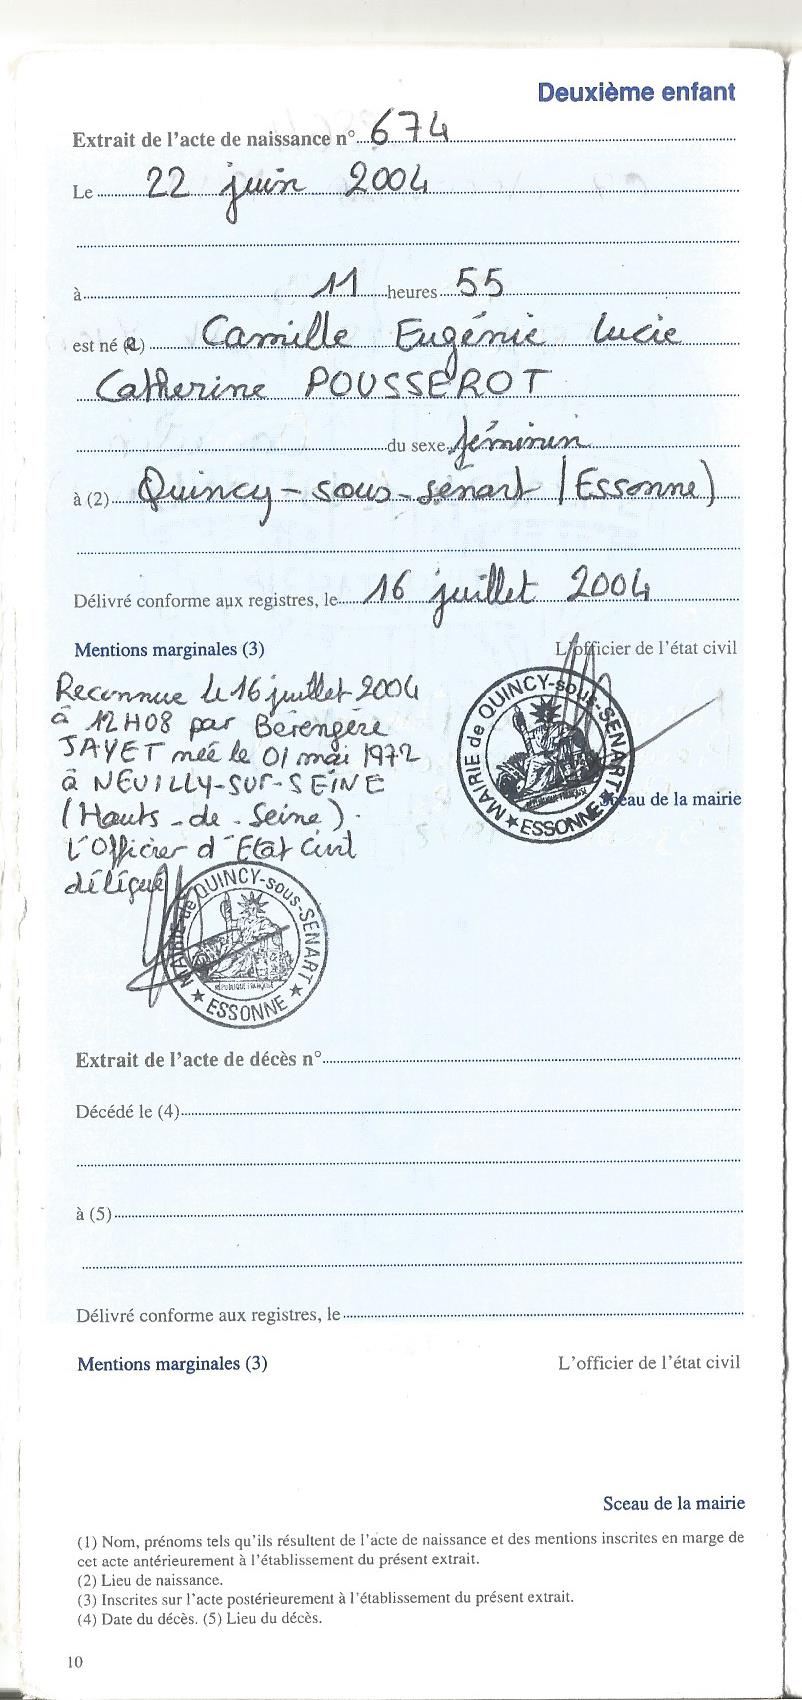 Deuxième enfant
Extrait de l'acte de naissance n° 674
Le 22 juin 2004
à 11 heures 55
est né (e) Camille Eugénie Lucie
Catherine POUSSEROT
du sexe féminin
à (2) Quincy-sous-sénart (Essonne)
Délivré conforme aux registres, le 16 juillet 2004
Mentions marginales (3) L'officier de l'état civil
Reconnue le 16 juillet 2004
à 12H08 par Bérengère
JAYET née le 01 mai 1972
à NEUILLY-SUR-SEINE
(Hauts-de-Seine).
L'Officier d'Etat Civil
délégué
MAIRIE de QUINCY-sous-SENART
★ ESSONNE ★
Sceau de la mairie
MAIRIE de QUINCY-sous-SENART
RÉPUBLIQUE FRANÇAISE
★ ESSONNE ★
Extrait de l'acte de décès n°
Décédé le (4)
à (5)
Délivré conforme aux registres, le
Mentions marginales (3) L'officier de l'état civil
Sceau de la mairie
(1) Nom, prénoms tels qu'ils résultent de l'acte de naissance et des mentions inscrites en marge de
cet acte antérieurement à l'établissement du présent extrait.
(2) Lieu de naissance.
(3) Inscrites sur l'acte postérieurement à l'établissement du présent extrait.
(4) Date du décès. (5) Lieu du décès.
10